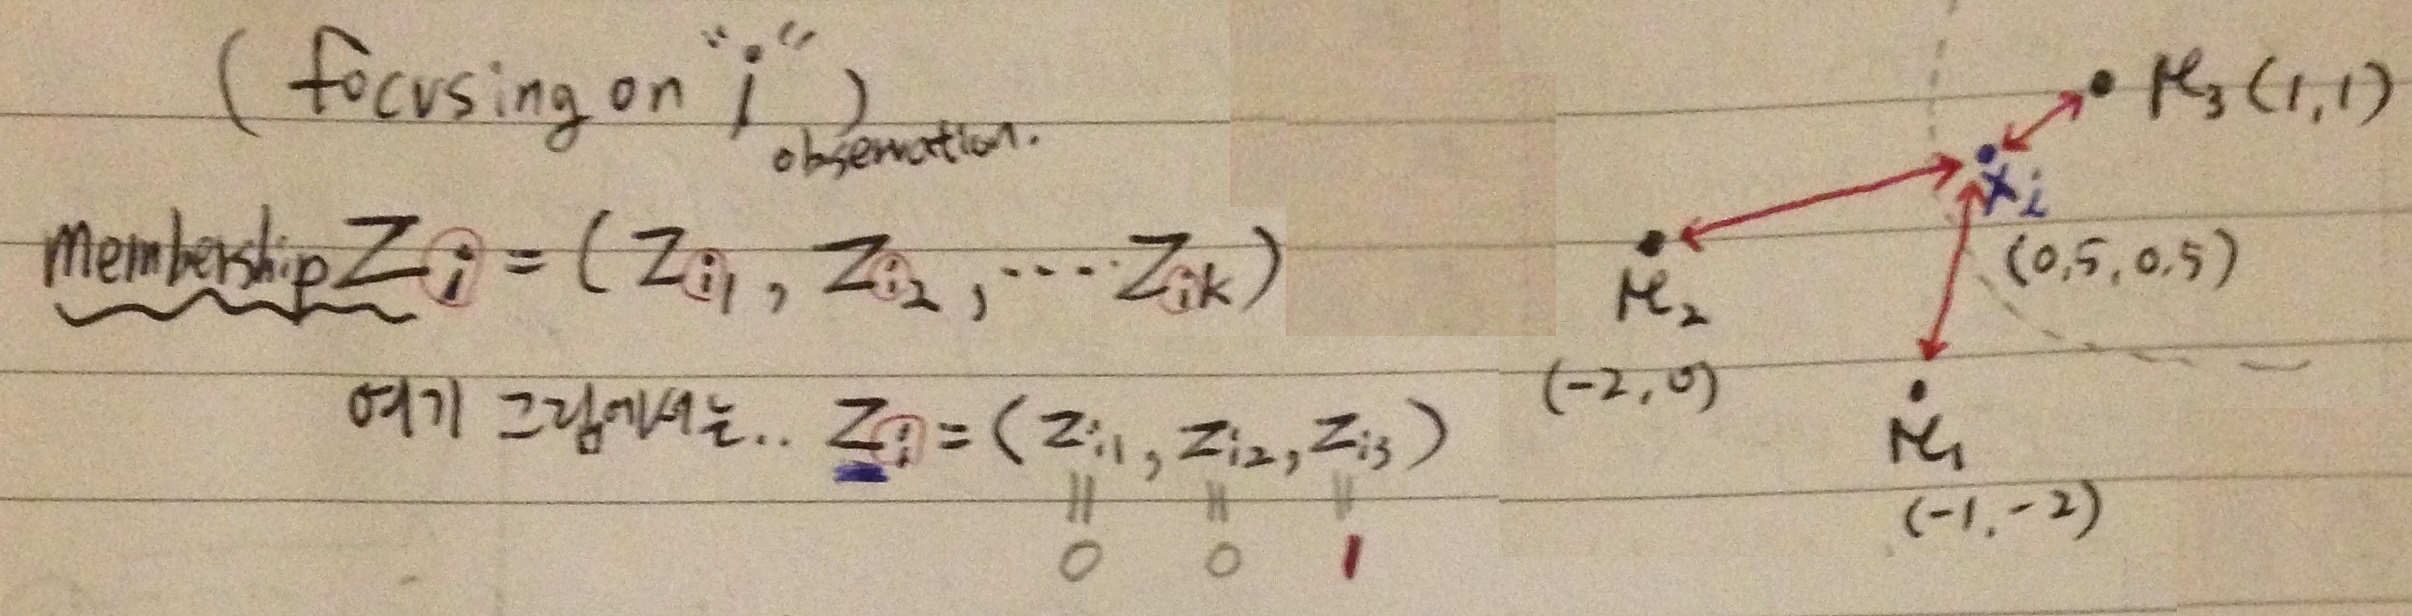 (focusing on "i")
observation.
membership Zi = (Zi1, Zi2, ····Zik)
여기 그림에서는.. Zi = (Zi1, Zi2, Zi3)
|| || ||
0 0 1
μ3 (1,1)
xi
(0.5, 0.5)
μ2
(-2, 0)
μ1
(-1, -2)